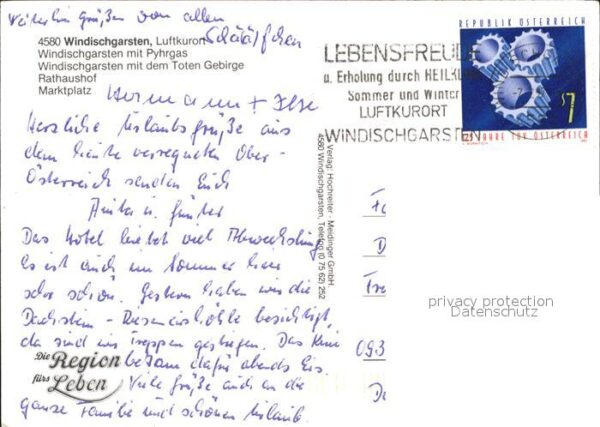 Weiterhin Grüßen von allen
Schäfchen
4580 Windischgarsten, Luftkurort
Windischgarsten mit Pyhrgas
Windischgarsten mit dem Toten Gebirge
Rathaushof
Marktplatz
Hermann + Ilse
Herzliche Urlaubsgrüße aus
dem heute verregneten Ober-
Österreich senden Euch
Anita u. Günter
Das Hotel bietet viel Abwechslung
Es ist auch im Sommer hier
sehr schön. Gestern haben wir die
Dachstein - Rieseneishöhle besichtigt,
da sind wir Treppen gestiegen. Das Knie
bekam dafür abends Eis.
Viele Grüße auch an die
ganze Familie und schönen Urlaub.
Die Region
fürs Leben
Verlag: Hochreiter - Meidinger GmbH
4580 Windischgarsten, Telefon (0 75 62) 252
LEBENSFREUDE
u. Erholung durch HEILKLIMA
Sommer und Winter
LUFTKURORT
WINDISCHGARSTEN
REPUBLIK ÖSTERREICH
S7
125 JAHRE TÜV ÖSTERREICH
Fa
D
Fra
093
privacy protection
Datenschutz